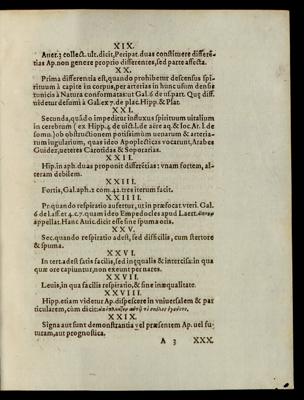 XIX.
Auer. 3 collect. ult. dicit, Peripat. duas constituere differẽ-
tias Ap. non genere proprio differentes, sed parte affecta.
XX.
Prima differentia est, quando prohibetur descensus spi-
rituum à capite in corpus, per arterias in hunc usum densis
tunicis à Natura conformatas ut Gal. 6 de us. part. Quę diff.
videtur desumi à Gal. ex 7. de plac. Hipp. & Plat.
XXI.
Secunda, quãdo impeditur influxus spirituum uitalium
in cerebrum (ex Hipp. 4 de uict. I. de aëre aq. & loc. Ar. l. de
somn.) ob obstructionem potissimùm uenarum & arteria-
rum iugularium, quas ideo Apoplecticas vocarunt, Arabes
Guidez, ueteres Carotidas & Soporarias.
XXII.
Hip. in aph. duas proponit differẽtias: vnam fortem, al-
teram debilem.
XXIII.
Fortis, Gal. aph. 2 com. 42. tres iterum facit.
XXIIII.
Pr. quando respiratio aufertur, ut in præfocat. vteri. Gal.
6 de l. aff. et 4. c. 7. quam ideo Empedocles apud Laert.
appellat. Hanc Auic. dicit esse sine spuma oris.
XXV.
Sec. quando respiratio adest, sed difficilis, cum stertore
& spuma.
XXVI.
In tert. adest satis facilis, sed inęqualis & intercisa: in qua
quæ ore capiuntur, non exeunt per nares.
XXVII.
Leuis, in qua facilis respiratio, & sine inæqualitate.
XXVIII.
Hipp. etiam videtur Ap. dispescere in vniuersalem & par
ticularem, cùm dicit:
XXIX.
Signa aut sunt demonstrantia vel præsentem Ap. uel fu-
turam, aut prognostica.
A 3 XXX.